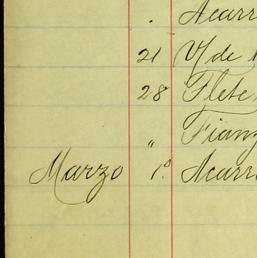 . Acarr
21 Y/ de
28 Flete
" Fianz
Marzo 1º Acarr